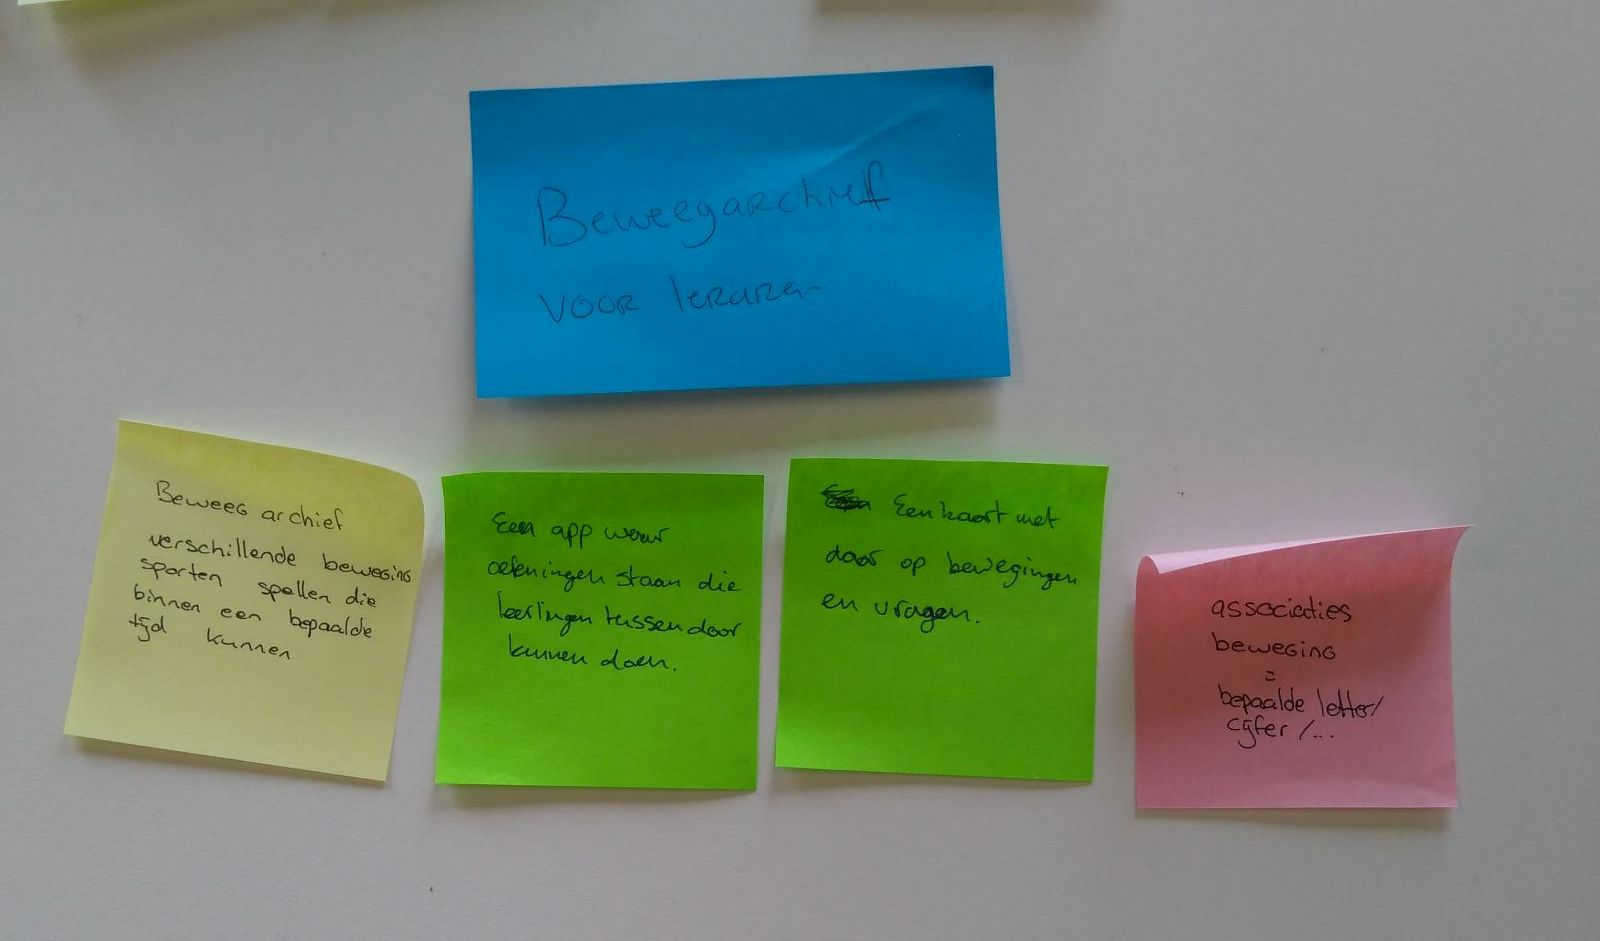 Beweegarchief
voor leraren
Beweeg archief
verschillende beweging
sporten spellen die
binnen een bepaalde
tijd kunnen
Een app waar
oefeningen staan die
leerlingen tussendoor
kunnen doen.
Een kaart met
daar op bewegingen
en vragen.
associaties
beweging
=
bepaalde letter/
cijfer /...